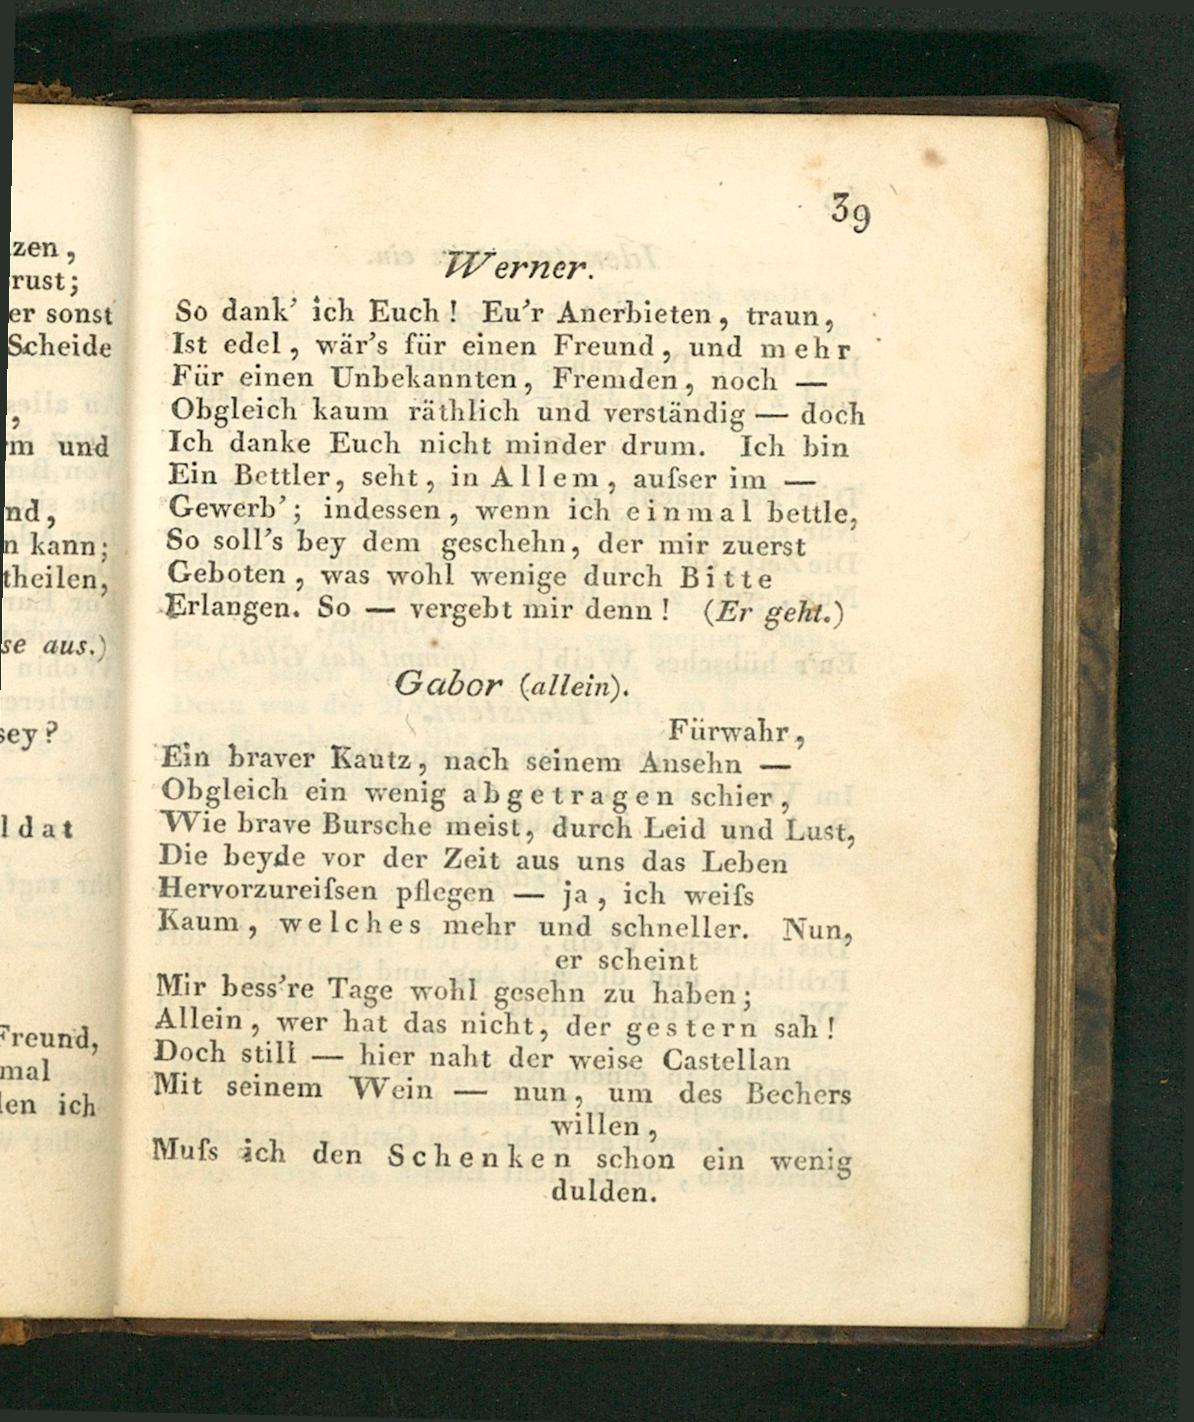 zen,
rust;
er sonst
Scheide
,
m und
nd,
n kann;
theilen,
se aus.)
sey?
ldat
Freund,
mal
len ich
39
Werner.
So dank' ich Euch! Eu'r Anerbieten, traun,
Ist edel, wär's für einen Freund, und mehr
Für einen Unbekannten, Fremden, noch —
Obgleich kaum räthlich und verständig — doch
Ich danke Euch nicht minder drum. Ich bin
Ein Bettler, seht, in Allem, auſser im —
Gewerb'; indessen, wenn ich einmal bettle,
So soll's bey dem geschehn, der mir zuerst
Geboten, was wohl wenige durch Bitte
Erlangen. So — vergebt mir denn! (Er geht.)
Gabor (allein).
Fürwahr,
Ein braver Kautz, nach seinem Ansehn —
Obgleich ein wenig abgetragen schier,
Wie brave Bursche meist, durch Leid und Lust,
Die beyde vor der Zeit aus uns das Leben
Hervorzureiſsen pflegen — ja, ich weiſs
Kaum, welches mehr und schneller. Nun,
er scheint
Mir bess're Tage wohl gesehn zu haben;
Allein, wer hat das nicht, der gestern sah!
Doch still — hier naht der weise Castellan
Mit seinem Wein — nun, um des Bechers
willen,
Muſs ich den Schenken schon ein wenig
dulden.